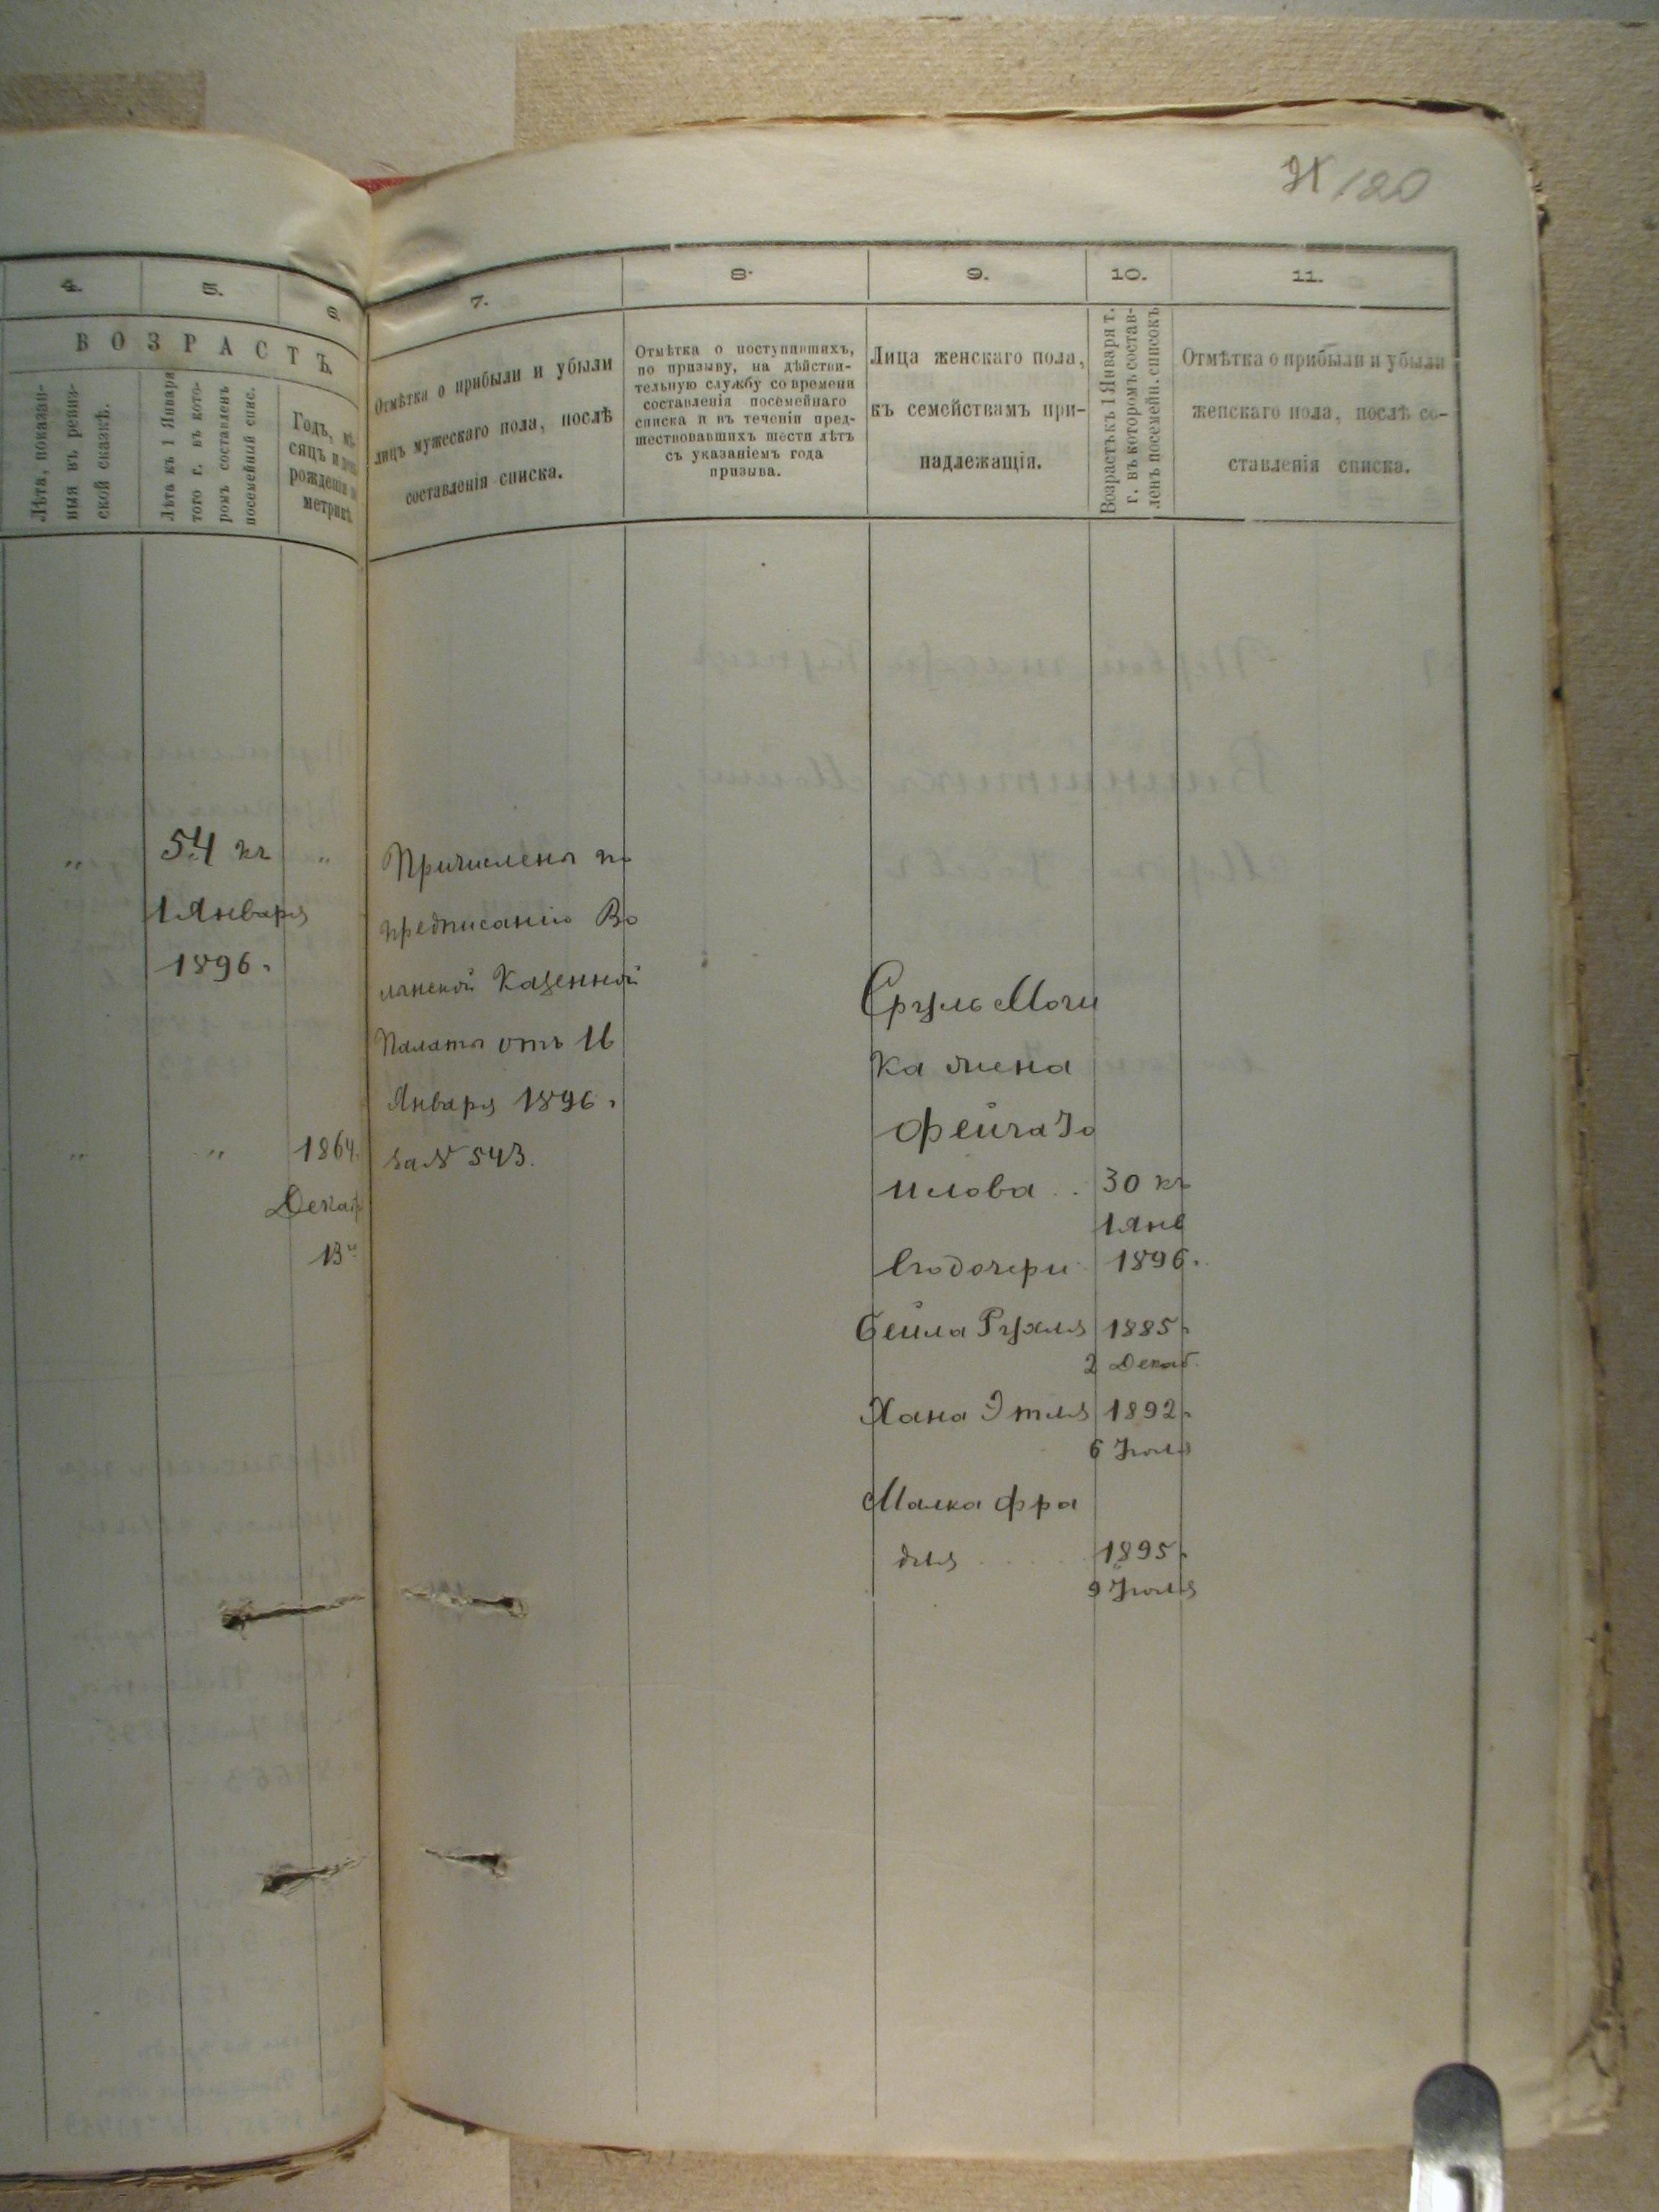 120
4.
5.
6.
ВОЗРАСТЪ.
Лѣта, показан-
ныя въ ревиз-
ской сказкѣ.
Лѣта къ 1 Января
того г. въ кото-
ромъ составленъ
посемейный спис.
Годъ, мѣ-
сяцъ и день
рожденія по
метрикѣ.
„
54 къ
1 Января
1896 г.
„
„
„
1864.
Декаб
13го
7.
8.
9.
10.
11.
Отмѣтка о прибыли и убыли
лицъ мужескаго пола, послѣ
составленія списка.
Отмѣтка о поступившихъ,
по призыву, на дѣйстви-
тельную службу со времени
составленія посемейнаго
списка и въ теченіи пред-
шествовавшихъ шести лѣтъ
съ указаніемъ года
призыва.
Лица женскаго пола,
къ семействамъ при-
надлежащія.
Возрастъ къ 1 Января т.
г. въ которомъ состав-
ленъ посемейн. списокъ
Отмѣтка о прибыли и убыли
женскаго пола, послѣ со-
ставленія списка.
Причислены по
предписанію Во
лынской Казенной
Палаты отъ 16
Января 1896 г
за № 543.
Сруль Мош
ка жена
Фейга Іо
илова .. 30 къ
1 Янв
1896 г.
Его дочери
Бейла Рухля 1885 г.
2 Декаб.
Хана Этля 1892 г.
6 Іюля
Малка Фра
для ..... 1895 г.
9 Іюля